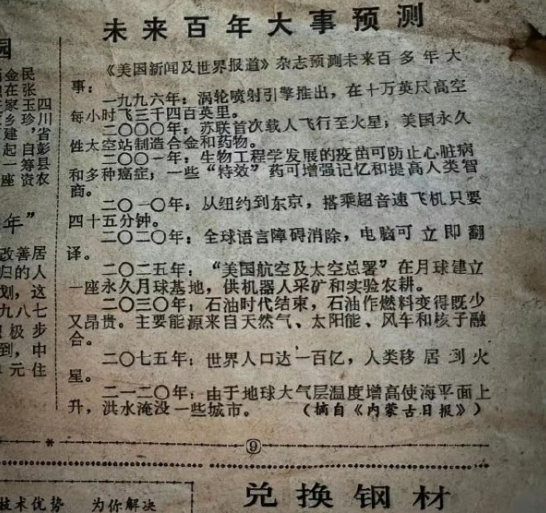 未来百年大事预测
《美国新闻及世界报道》杂志预测未来百多年大
事：
一九九六年：涡轮喷射引擎推出，在十万英尺高空
每小时飞三千四百英里。
二〇〇〇年：苏联首次载人飞行至火星；美国永久
性太空站制造合金和药物。
二〇〇一年：生物工程学发展的疫苗可防止心脏病
和多种癌症；一些“特效”药可增强记忆和提高人类智
商。
二〇一〇年：从纽约到东京，搭乘超音速飞机只要
四十五分钟。
二〇二〇年：全球语言障碍消除，电脑可立即翻
译。
二〇二五年：“美国航空及太空总署”在月球建立
一座永久月球基地，供机器人采矿和实验农耕。
二〇三〇年：石油时代结束，石油作燃料变得既少
又昂贵。主要能源来自天然气、太阳能、风车和核子融
合。
二〇七五年：世界人口达一百亿，人类移居到火
星。
二一二〇年：由于地球大气层温度增高使海平面上
升，洪水淹没一些城市。（摘自《内蒙古日报》）
⑨
园
金民
在张
家玉四
乡珍川
建，省
起自彭
一筹县
座资农
年”
改善居
归的人
划，这
九八七
极步
到，中
元住
技术优势 为你解决
兑换钢材